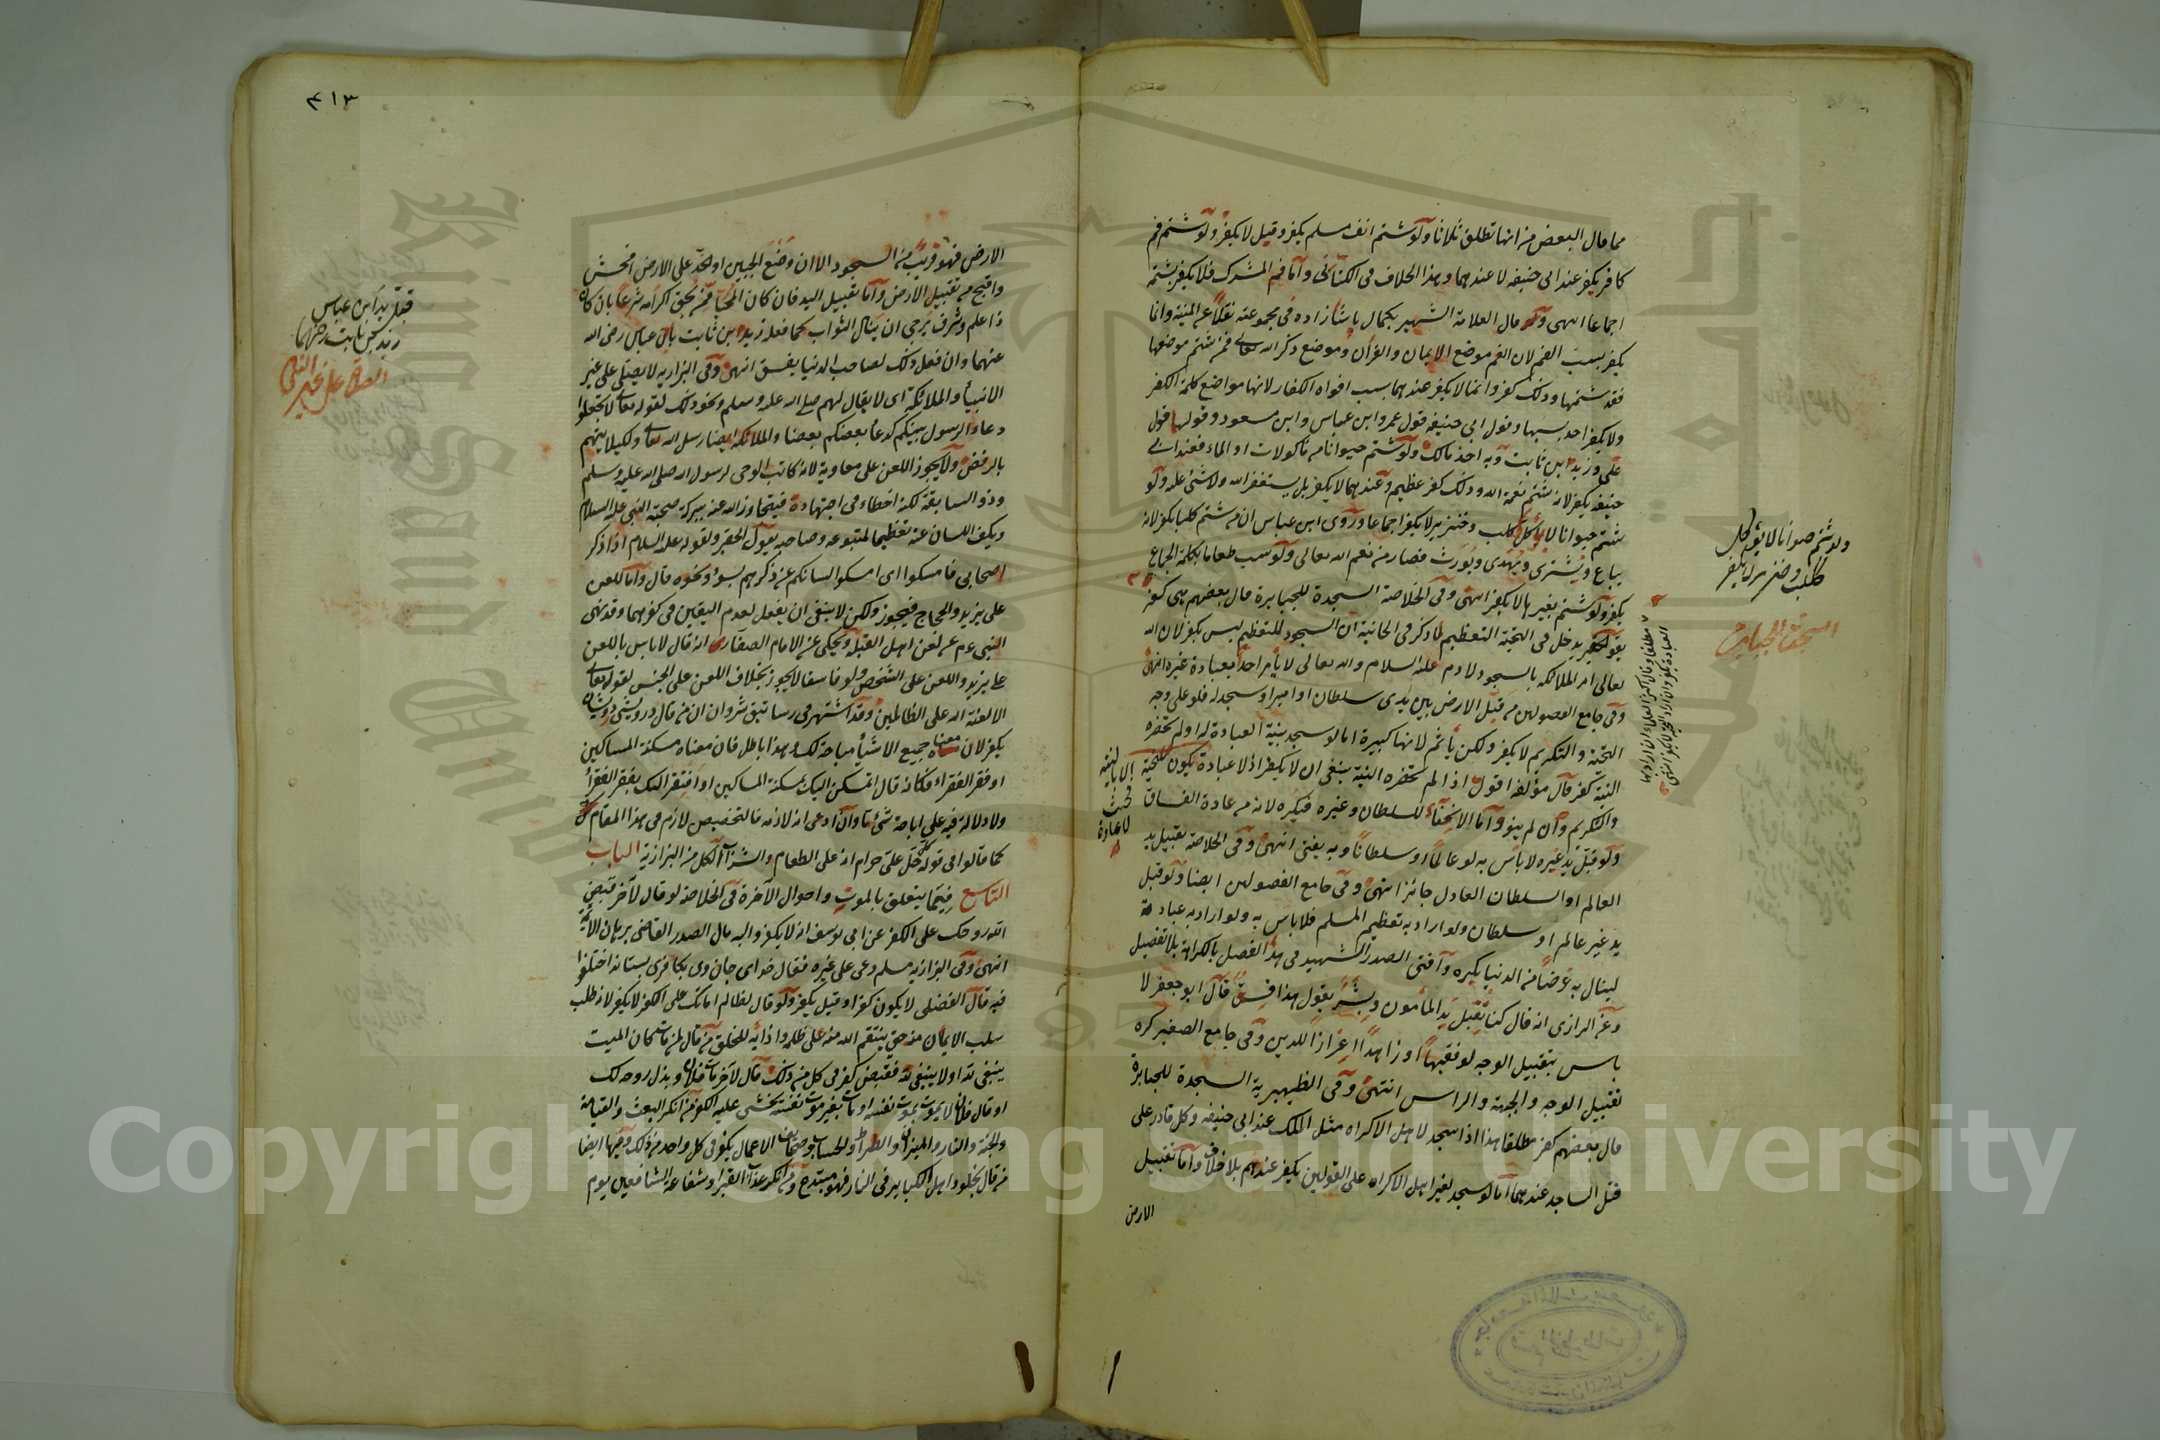 مما قال البعض من انها تطلق ثلاثا ولو شتم انف مسلم يكفر وقيل لا يكفر ولو شتم فم
كافر يكفر عند ابي حنيفه لا عندهما وهذا الخلاف في الكتابي واما فم المشرك فلا يكفر بشتمه
اجماعا انتهى وقد قال العلامة الشهير بكمال باشا زاده في مجموعته نقلا عن المنية وانما
يكفر بسب الفم لان الفم موضع الايمان والقرآن وموضع ذكر الله تعالى فمن شتم موضعها
فقد شتمها وذلك كفر وانما لا يكفر عندهما بسب افواه الكفار لانها مواضع كلمة الكفر
ولا يكفر احد بسبها وقول ابي حنيفه قول عمر وابن عباس وابن مسعود وقولهما قول
علي وزيد ابن ثابت وبه اخذ مالك ولو شتم حيوانا من مأكولات او الماء فعند ابي
حنيفه يكفر لانه شتم نعمة الله وذلك كفر عظيم وعندهما لا يكفر بل يستغفر الله ولا شئ عليه ولو
شتم حيوانا لا يؤكل ككلب وخنزير لا يكفر اجماعا وروى ابن عباس ان من شتم كلبا يكفر لانه
يباع ويشترى ويهدى ويورث فصار من نعم الله تعالى ولو سب طعاما بكلمة الجماع
يكفر ولو شتم بغيرها لا يكفر انتهى وفي الخلاصة السجدة للجبابرة قال بعضهم هي كفر
يقول الحقير يدخل في التحية التعظيم لما ذكر في الخانية ان السجود للتعظيم ليس بكفر لان الله
تعالى امر الملائكه بالسجود لادم عليه السلام والله تعالى لا يأمر احدا بعبادة غيره انتهى
وفي جامع الفصولين من قبل الارض بين يدي سلطان او امير او سجد له فلو على وجه
التحية والتكريم لا يكفر ولكن يأثم لانها كبيرة اما لو سجد بنية العبادة له او لم تحضره
النية كفر قال مؤلفه اقول اذا لم تحضره النية ينبغي ان لا يكفر اذ لا عبادة فيكون للتحية
والتكريم وان لم ينو واما الانحناء للسلطان وغيره فيكره لانه من عادة الفساق
ولو قبل يد غيره لا بأس به لو عالما او سلطانا وبه يفتى انتهى وفي الخلاصة تقبيل يد
العالم او السلطان العادل جائز انتهى وفي جامع الفصولين ايضا ولو قبل
يد غير عالم او سلطان ولو اراد به تعظيم المسلم فلا بأس به ولو اراد به عبادة
لينال به عرضا من الدنيا يكره وافتى الصدر الشهيد في هذا الفصل بالكراهة بلا تفصيل
وعن الرازي انه قال كنا نقبل يد المأمون وبشر يقول هذا فسق قال ابو جعفر لا
بأس بتقبيل الوجه لو فقيها او زاهدا اعزازا للدين وفي جامع الصغير كره
تقبيل الوجه والجبهة والراس انتهى وفي الظهيرية السجدة للجبابرة
قال بعضهم كفر مطلقا هذا اذا سجد لاهل الاكراه مثل الملك عند ابي حنيفه وكل قادر على
قتل الساجد عندهما اما لو سجد لغير اهل الاكراه على القولين يكفر عندهم بلا خلاف واما تقبيل
الارض
ولو شتم حيوانا لا يؤكل
ككلب وخنزير لا يكفر
السجدة للجبابرة
٤١٣
الارض فهو قريب من السجود الا ان وضع الجبين او الخد على الارض افحش
واقبح من تقبيل الارض واما تقبيل اليد فان كان المحيا ممن يحق اكرامه شرعا بان كان
ذا علم وشرف يرجى ان ينال الثواب كما فعله زيد ابن ثابت بابن عباس رضى الله
عنهما وان فعل ذلك لصاحب الدنيا يفسق انتهى وفي البزازية لا يصلى على غير
الانبياء والملائكة اى لا يقال لهم صلى الله عليه وسلم ونحو ذلك لقوله تعالى لا تجعلوا
دعاء الرسول بينكم كدعاء بعضكم بعضا والملائكة ايضا رسل الله تعالى ولكيلا يتهم
بالرفض ولا يجوز اللعن على معاوية لانه كاتب الوحى لرسول الله صلى الله عليه وسلم
وذو السابقة لكنه اخطاء في اجتهاده فيتجاوز الله عنه ببركة صحبة النبي عليه السلام
ويكف اللسان عنه تعظيما لمتبوعه وصاحبه يقول الحقير ولقوله عليه السلام اذا ذكر
اصحابي فامسكوا اى امسكوا السانكم عن ذكرهم بسوء ونحوه قال واما اللعن
على يزيد والحجاج فيجوز ولكن لا ينبغي ان يفعل لعدم اليقين في كفرهما وقد نهى
النبي عم عن لعن اهل القبلة ويحكى عن الامام الصفاري انه قال لا بأس باللعن
على يزيد واللعن على الشخص ولو فاسقا لا يجوز بخلاف اللعن على الجنس لقوله تعالى
الا لعنة الله على الظالمين وقد اشتهر في رساتيق شروان ان من قال درويش درويشان
يكفر لان معناه جميع الاشياء مباحة لك وهذا باطل فان معناه مسكنة المساكين
او فقر الفقراء فكانه قال تمسكن اليك مسكنة المساكين او افتقر اليك بفقر الفقراء
ولا دلالة فيه على اباحة شئ ما وان ادعى انه لازمه فالتخصيص لازم في هذا المقام
كما قالوا في قوله كل حل علي حرام انه على الطعام والشراب الكل من البزازية الباب
التاسع فيما يتعلق بالموت واحوال الآخرة في الخلاصة لو قال لآخر قبض
الله روحك على الكفر عن ابي يوسف انه لا يكفر واليه مال الصدر القاضي برهان الائمة
انتهى وفي البزازية مسلم دعى على غيره فقال خداى جان وى بكافرى بستاند اختلفوا
فيه قال الفضلى لا يكون كفرا وقيل يكفر ولو قال لظالم اماتك على الكفر لا يكفر لانه طلب
سلب الايمان منه حتى ينتقم الله منه على ظلمه واذايه للخلق من قال لمن مات كان الميت
ينبغي لله او لا ينبغي لله فقبض كفر في كل من ذلك قال لآخر مات فلان وبذل روحه لك
او قال فلان لا يموت بموت نفسه او مات بغير موت نفسه يخشى عليه الكفر من انكر البعث والقيامة
والجنة والنار والميزان والصراط والحساب وصحائف الاعمال يكفر في كل واحد من ذلك وفيها ايضا
من قال بخلود اهل الكبائر في النار فهو مبتدع ومن انكر عذاب القبر او شفاعة الشافعين يوم
قبل يد ابن عباس
زيد بن ثابت رضي عنهما
الصلاة على غير النبي
Copyright © King Saud University